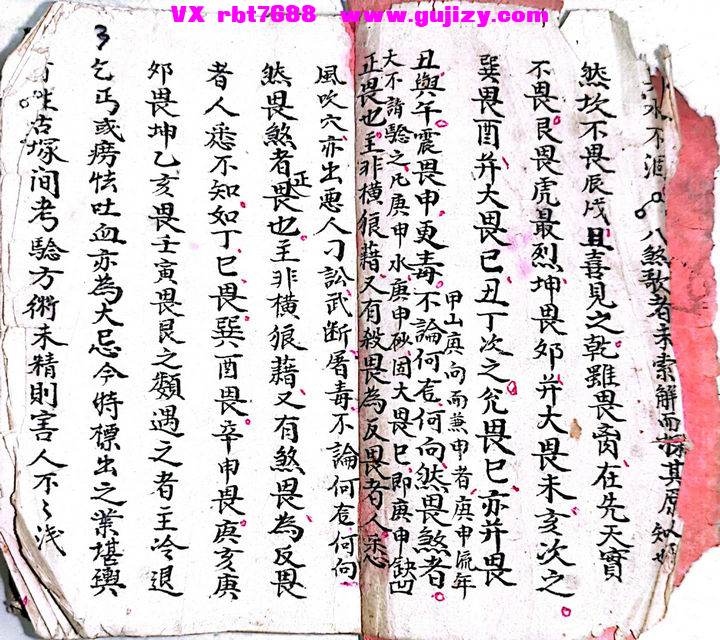 VX rbt7688 www.gujizy.com
水不 八煞歌者未索解而探其原 知
然坎不畏辰戌且喜見之乾雖畏 在先天實
不畏艮畏虎最烈坤畏夘并大畏未亥次之
巽畏酉并大畏巳丑丁次之兊畏巳亦并畏
甲山庚向而兼申者庚申流年
丑與午震畏申更毒不論何 何向然畏煞者
大不諳驗之凡庚申水庚申砂固大畏巳即庚申缺凹
正畏也主非橫狼藉又有殺畏為反畏者人悉
風吹穴亦出悪人刁訟武断屠毒不論何 何向
然畏煞者正畏也主非橫狼藉又有煞畏為反畏
者人悉不知如丁巳畏巽酉畏辛申畏庚亥庚
夘畏坤乙亥畏壬寅畏艮之類遇之者主冷退
乞丐或癆怯吐血亦為大忌今特標出之業堪輿
古塚间考驗方術未精則害人不々浅